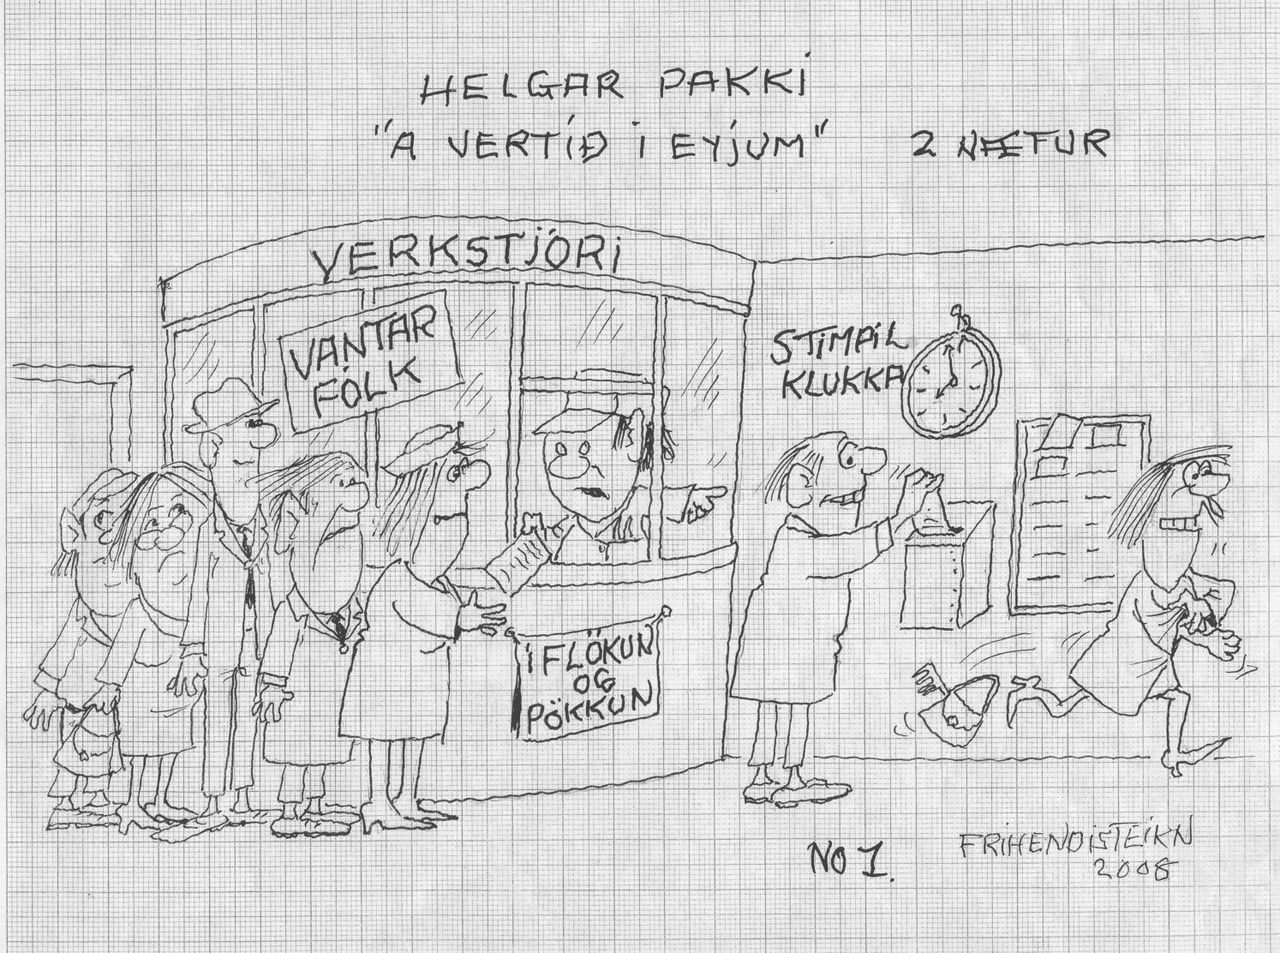 HELGAR PAKKI
"Á VERTÍÐ Í EYJUM" 2 NÆTUR
VERKSTJÖRI
VANTAR
FÓLK
STIMPIL
KLUKKA
Í FLÖKUN
OG
PÖKKUN
NO 1.
FRÍHENDISTEIKN
2008